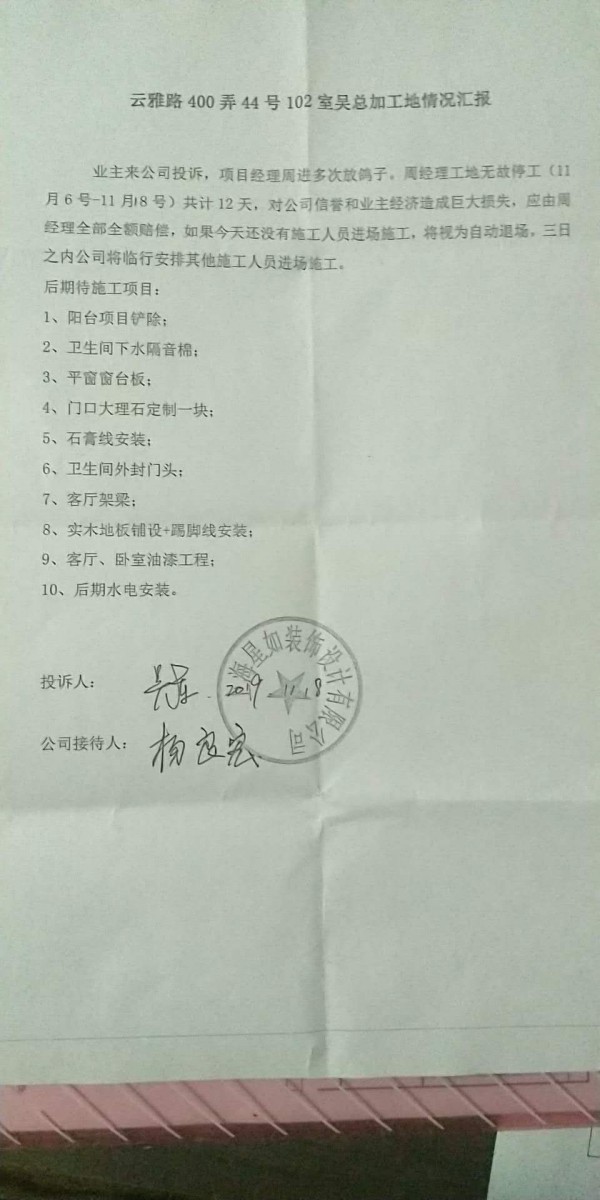 云雅路 400 弄 44 号 102 室吴总加工地情况汇报
业主来公司投诉，项目经理周进多次放鸽子。周经理工地无故停工（11
月 6 号-11 月18 号）共计 12 天，对公司信誉和业主经济造成巨大损失，应由周
经理全部全额赔偿，如果今天还没有施工人员进场施工，将视为自动退场，三日
之内公司将临行安排其他施工人员进场施工。
后期待施工项目：
1、阳台项目铲除；
2、卫生间下水隔音棉；
3、平窗窗台板；
4、门口大理石定制一块；
5、石膏线安装；
6、卫生间外封门头；
7、客厅架梁；
8、实木地板铺设+踢脚线安装；
9、客厅、卧室油漆工程；
10、后期水电安装。
海星如装饰设计有限公司
投诉人： 2019.11.18
公司接待人：杨良宏